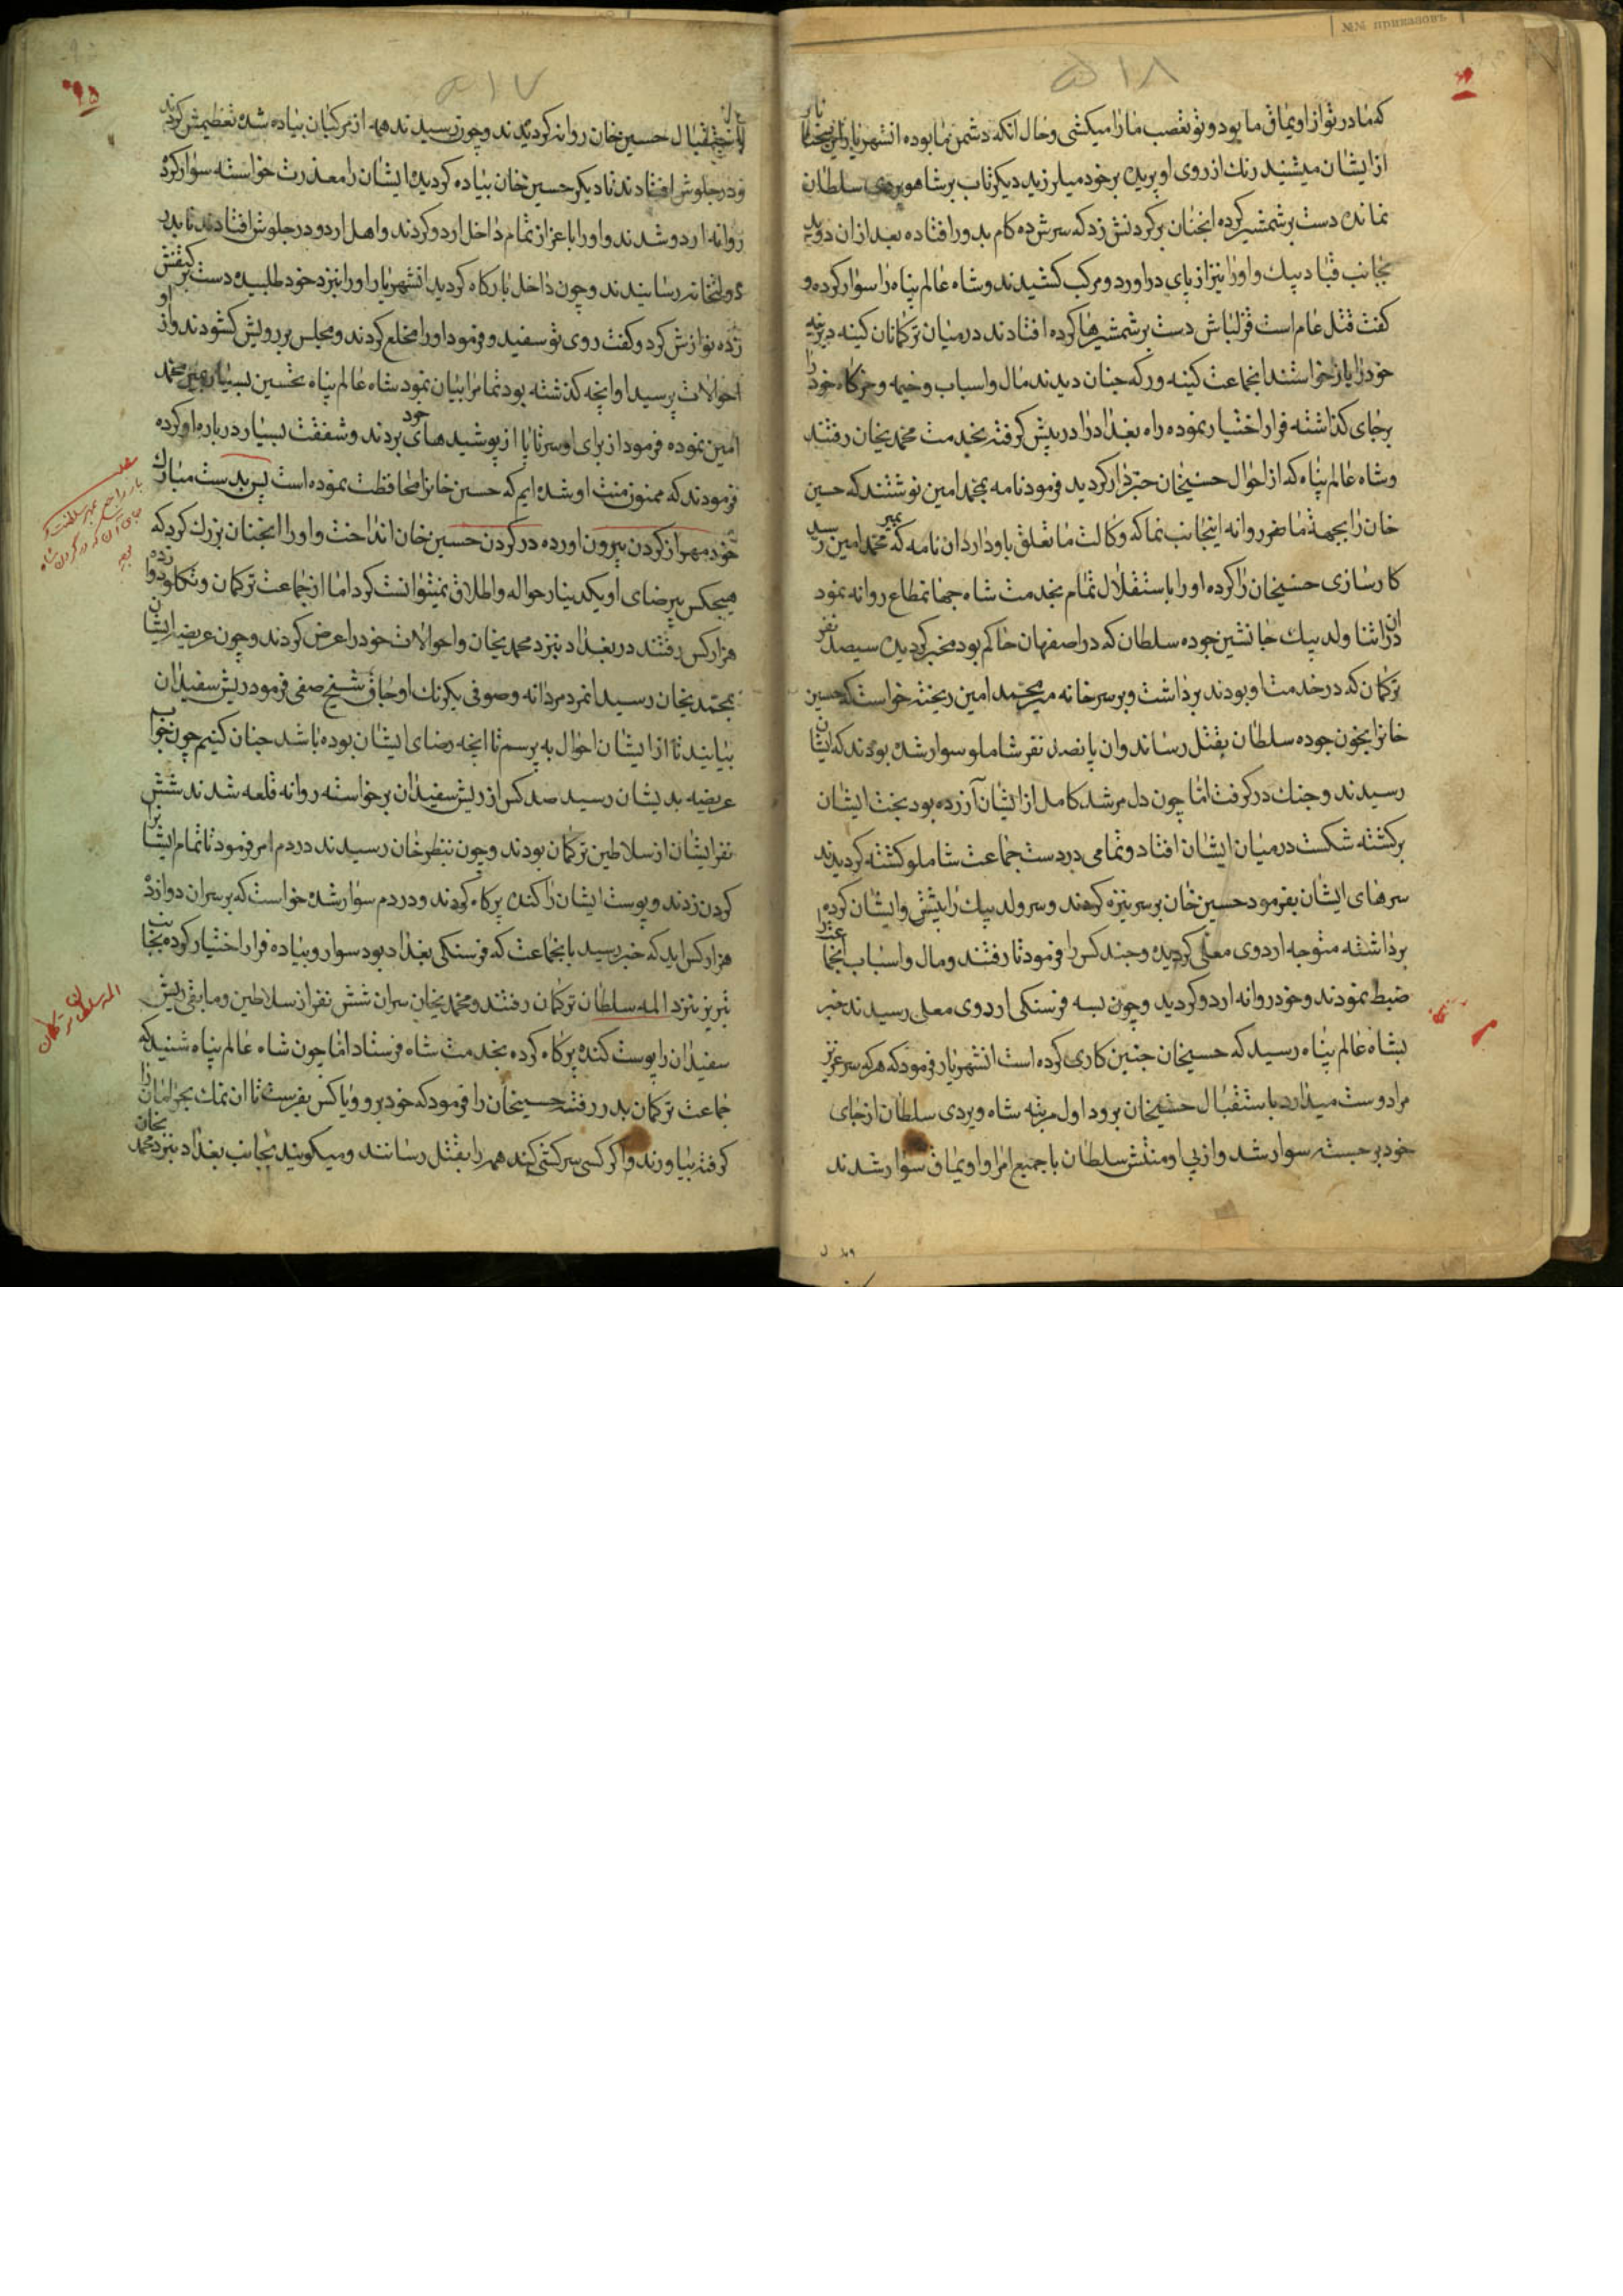 ۵۱۸
که مادر تو از اویماق ما بود و تو تعصب ما را میکشی و حال آنکه دشمن ما بوده انشهریار این سخنان
از ایشان میشنید رنك از روی او پریده بر خود میلرزید دیکر تاب بر شاهویردی سلطان
نمانده دست بر شمشیر کرده انچنان بر کردنش زد که سرش ده کام بدور افتاده بعد ازان دوید
بجانب قباد بیك و او را نیز از پای دراورد و مرکب کشیدند و شاه عالم پناه را سوار کرده و
کفت قتل عام است قزلباش دست بر شمشیرها کرده افتادند در میان ترکمانان کینه دیرینه
خود را باز خواستند انجماعت کینه ور که چنان دیدند مال و اسباب و خیمه و خرکاه خود را
بر جای کذاشته فرار اختیار نموده راه بغداد را در پیش کرفته بخدمت محمدیخان رفتند
و شاه عالم پناه که از احوال حسینخان خبردار کردید فرمود نامه بمحمد امین نوشتند که حسین
خان را بجهة ما روانه اینجانب نما که وکالت ما تعلق باو دارد ان نامه که بمیر محمد امین رسید
کارسازی حسینخان را کرده او را باستقلال تمام بخدمت شاه جهانمطاع روانه نمود
دران اثنا ولد بیك جانشین جوده سلطان که در اصفهان حاکم بود مخبر کردیده سیصد نفر
ترکمان که در خدمت او بودند برداشت و بر سر خانه میر محمد امین ریخته خواست که حسین
خانرا بخون جوده سلطان بقتل رساند وان پانصد نفر شاملو سوار شده بودند که ایشان
رسیدند و جنك در کرفت اما چون دل مرشد کامل از ایشان آزرده بود بخت ایشان
برکشته شکست در میان ایشان افتاد و تمامی در دست جماعت شاملو کشته کردیدند
سرهای ایشان بفرمود حسین خان بر سر نیزه کردند و سر ولد بیك را پیش و ایشان کرده
برداشته متوجه اردوی معلی کردیده و چند کس را فرمود تا رفتند و مال و اسباب انجماعت را
ضبط نمودند و خود روانه اردو کردید و چون بسه فرسنکی اردوی معلی رسیدند خبر
بشاه عالم پناه رسید که حسینخان چنین کاری کرده است انشهریار فرمود که هرکه سر عزیز
مرا دوست میدارد باستقبال حسینخان برود اول مرتبه شاه ویردی سلطان از جای
خود برجسته سوار شد و از پی او منتش سلطان با جمیع امرا و اویماق سوار شدند
۵۱۷
باستقبال حسین خان روانه کردیدند و چون رسیدند همه از مرکبان پیاده شده تعظیمش کردند
و در جلوش افتادند تا دیکر حسین خان پیاده کردیده ایشان را معذرت خواسته سوار کرد
روانه اردو شدند و او را باعزاز تمام داخل اردو کردند و اهل اردو در جلوش افتادند تا بدر
دولتخانه رسانیدند و چون داخل بارکاه کردید انشهریار او را بنزد خود طلبیده دست بر کتفش
زده نوازش کرد و کفت روی تو سفید و فرمود او را مخلع کردند و مجلس بر رویش کشودند و از
احوالات پرسید او انچه کذشته بود تمام را بیان نمود شاه عالم پناه تحسین بسیار بمیر محمد
امین نموده فرمود از برای او سر تا پا از پوشیدهای خود بردند و شفقت بسیار در باره او کرده
فرمودند که ممنون منت او شده ایم که حسین خانرا محافظت نموده است پس بدست مبارك
خود مهر از کردن بیرون اورده در کردن حسین خان انداخت و او را انچنان بزرك کرد که
هیچکس بیرضای او یکدینار حواله و اطلاق نمیتوانست کرد اما از جماعت ترکمان و تکلو دوازده
هزار کس رفتند در بغداد بنزد محمدیخان و احوالات خود را عرض کردند و چون عریضه ایشان
بمحمدیخان رسید انمرد مردانه و صوفی یکرنك اوجاق شیخ صفی فرمود ریش سفیدان
بیایند تا از ایشان احوال به پرسم تا انچه رضای ایشان بوده باشد چنان کنیم چون جواب
عریضه بدیشان رسید صد کس از ریش سفیدان برخواسته روانه قلعه شدند شش
نفر ایشان از سلاطین ترکمان بودند و چون بنظر خان رسیدند در دم امر فرمود تا تمام ایشان را
کردن زدند و پوست ایشان را کنده پر کاه کردند و در دم سوار شده خواست که بر سر ان دوازده
هزار کس اید که خبر رسید بانجماعت که فرسنکی بغداد بود سوار و پیاده فرار اختیار کرده بجانب
تبریز بنزد المه سلطان ترکمان رفتند و محمدیخان سران شش نفر از سلاطین و مابقی ریش
سفیدان را پوست کنده پر کاه کرده بخدمت شاه فرستاد اما چون شاه عالم پناه شنید که
جماعت ترکمان بدر رفته حسینخان را فرمود که خود برو و یا کس بفرست تا ان نمك بحرامان را
کرفته بیاورند و اکر کسی سرکشی کند همه را بقتل رسانند و میکویند بجانب بغداد بنزد محمدیخان
المه سلطان ترکمان